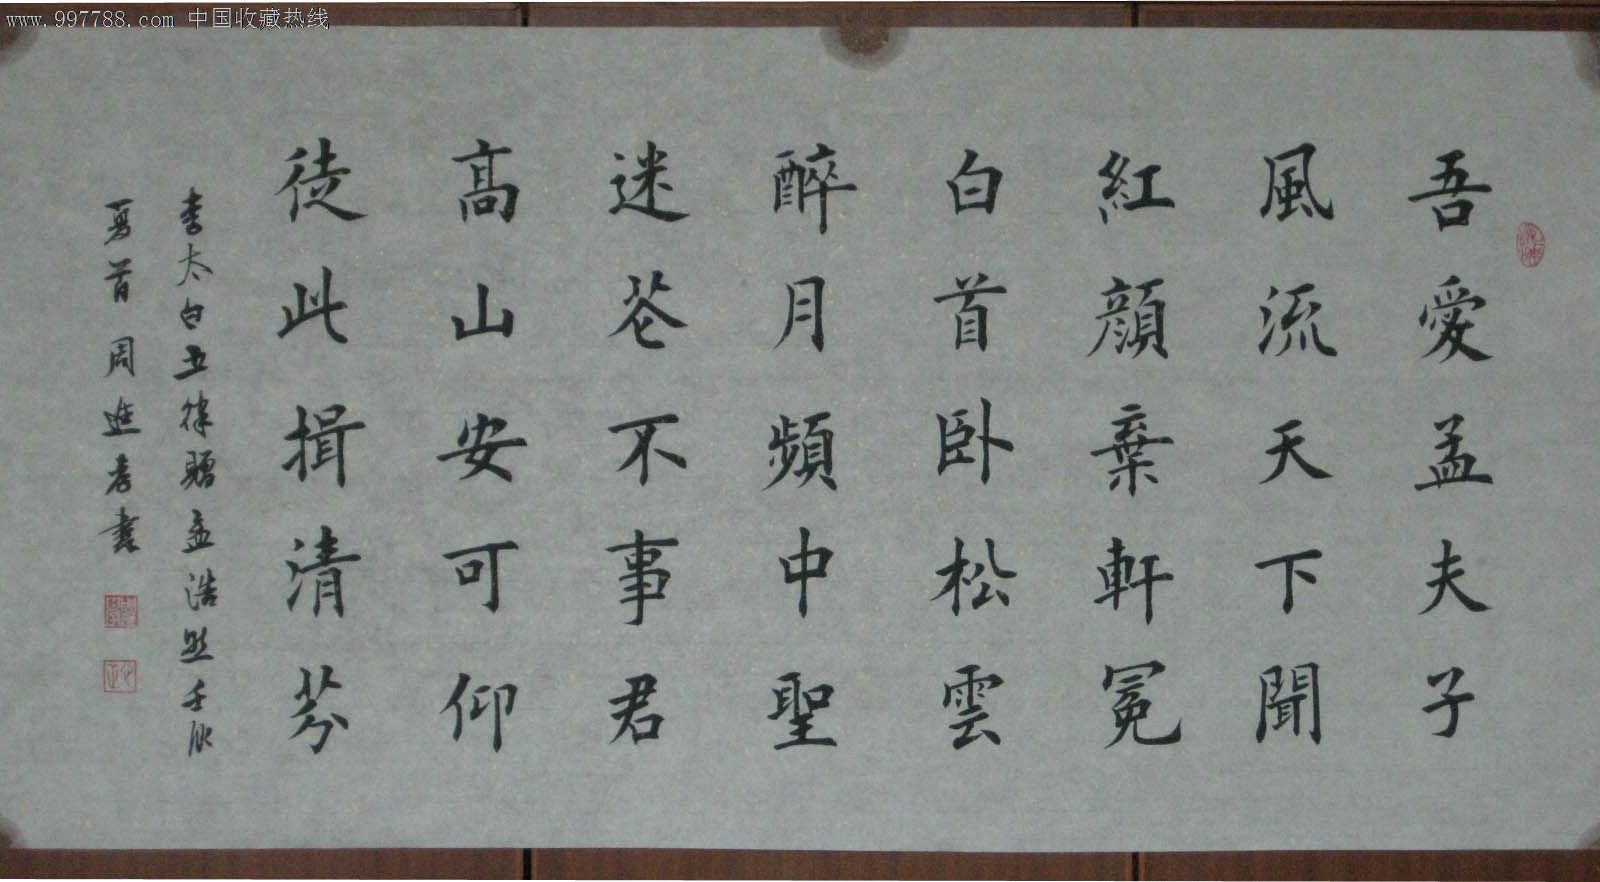 www.997788.com 中国收藏热线
吾愛孟夫子
風流天下聞
紅顔棄軒冕
白首卧松雲
醉月頻中聖
迷花不事君
高山安可仰
徒此揖清芬
李太白五律贈孟浩然壬辰
夏首周進孝書